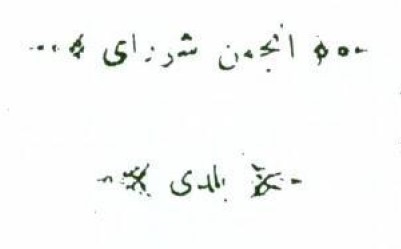 انجمن شورای
بلدی